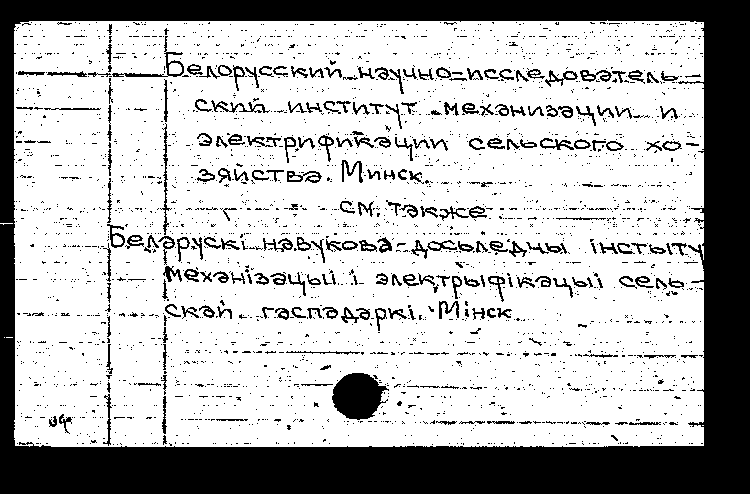 Белорусский научно-исследователь-
ский институт механизации и
электрификации сельского хо-
зяйства. Минск.
см. также
Беларускі навукова-досьледчы інстыту
механізацыі і электрыфікацыі сель-
скай гаспадаркі. Мінск